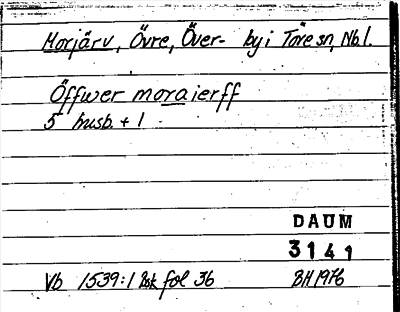 Morjärv, Övre, Över- by i Töre sn, Nb l.
Öffwer moraierff
5 husb. + 1
DAUM
3141
Vb 1539:1 Bsk fol 36 BH 1976